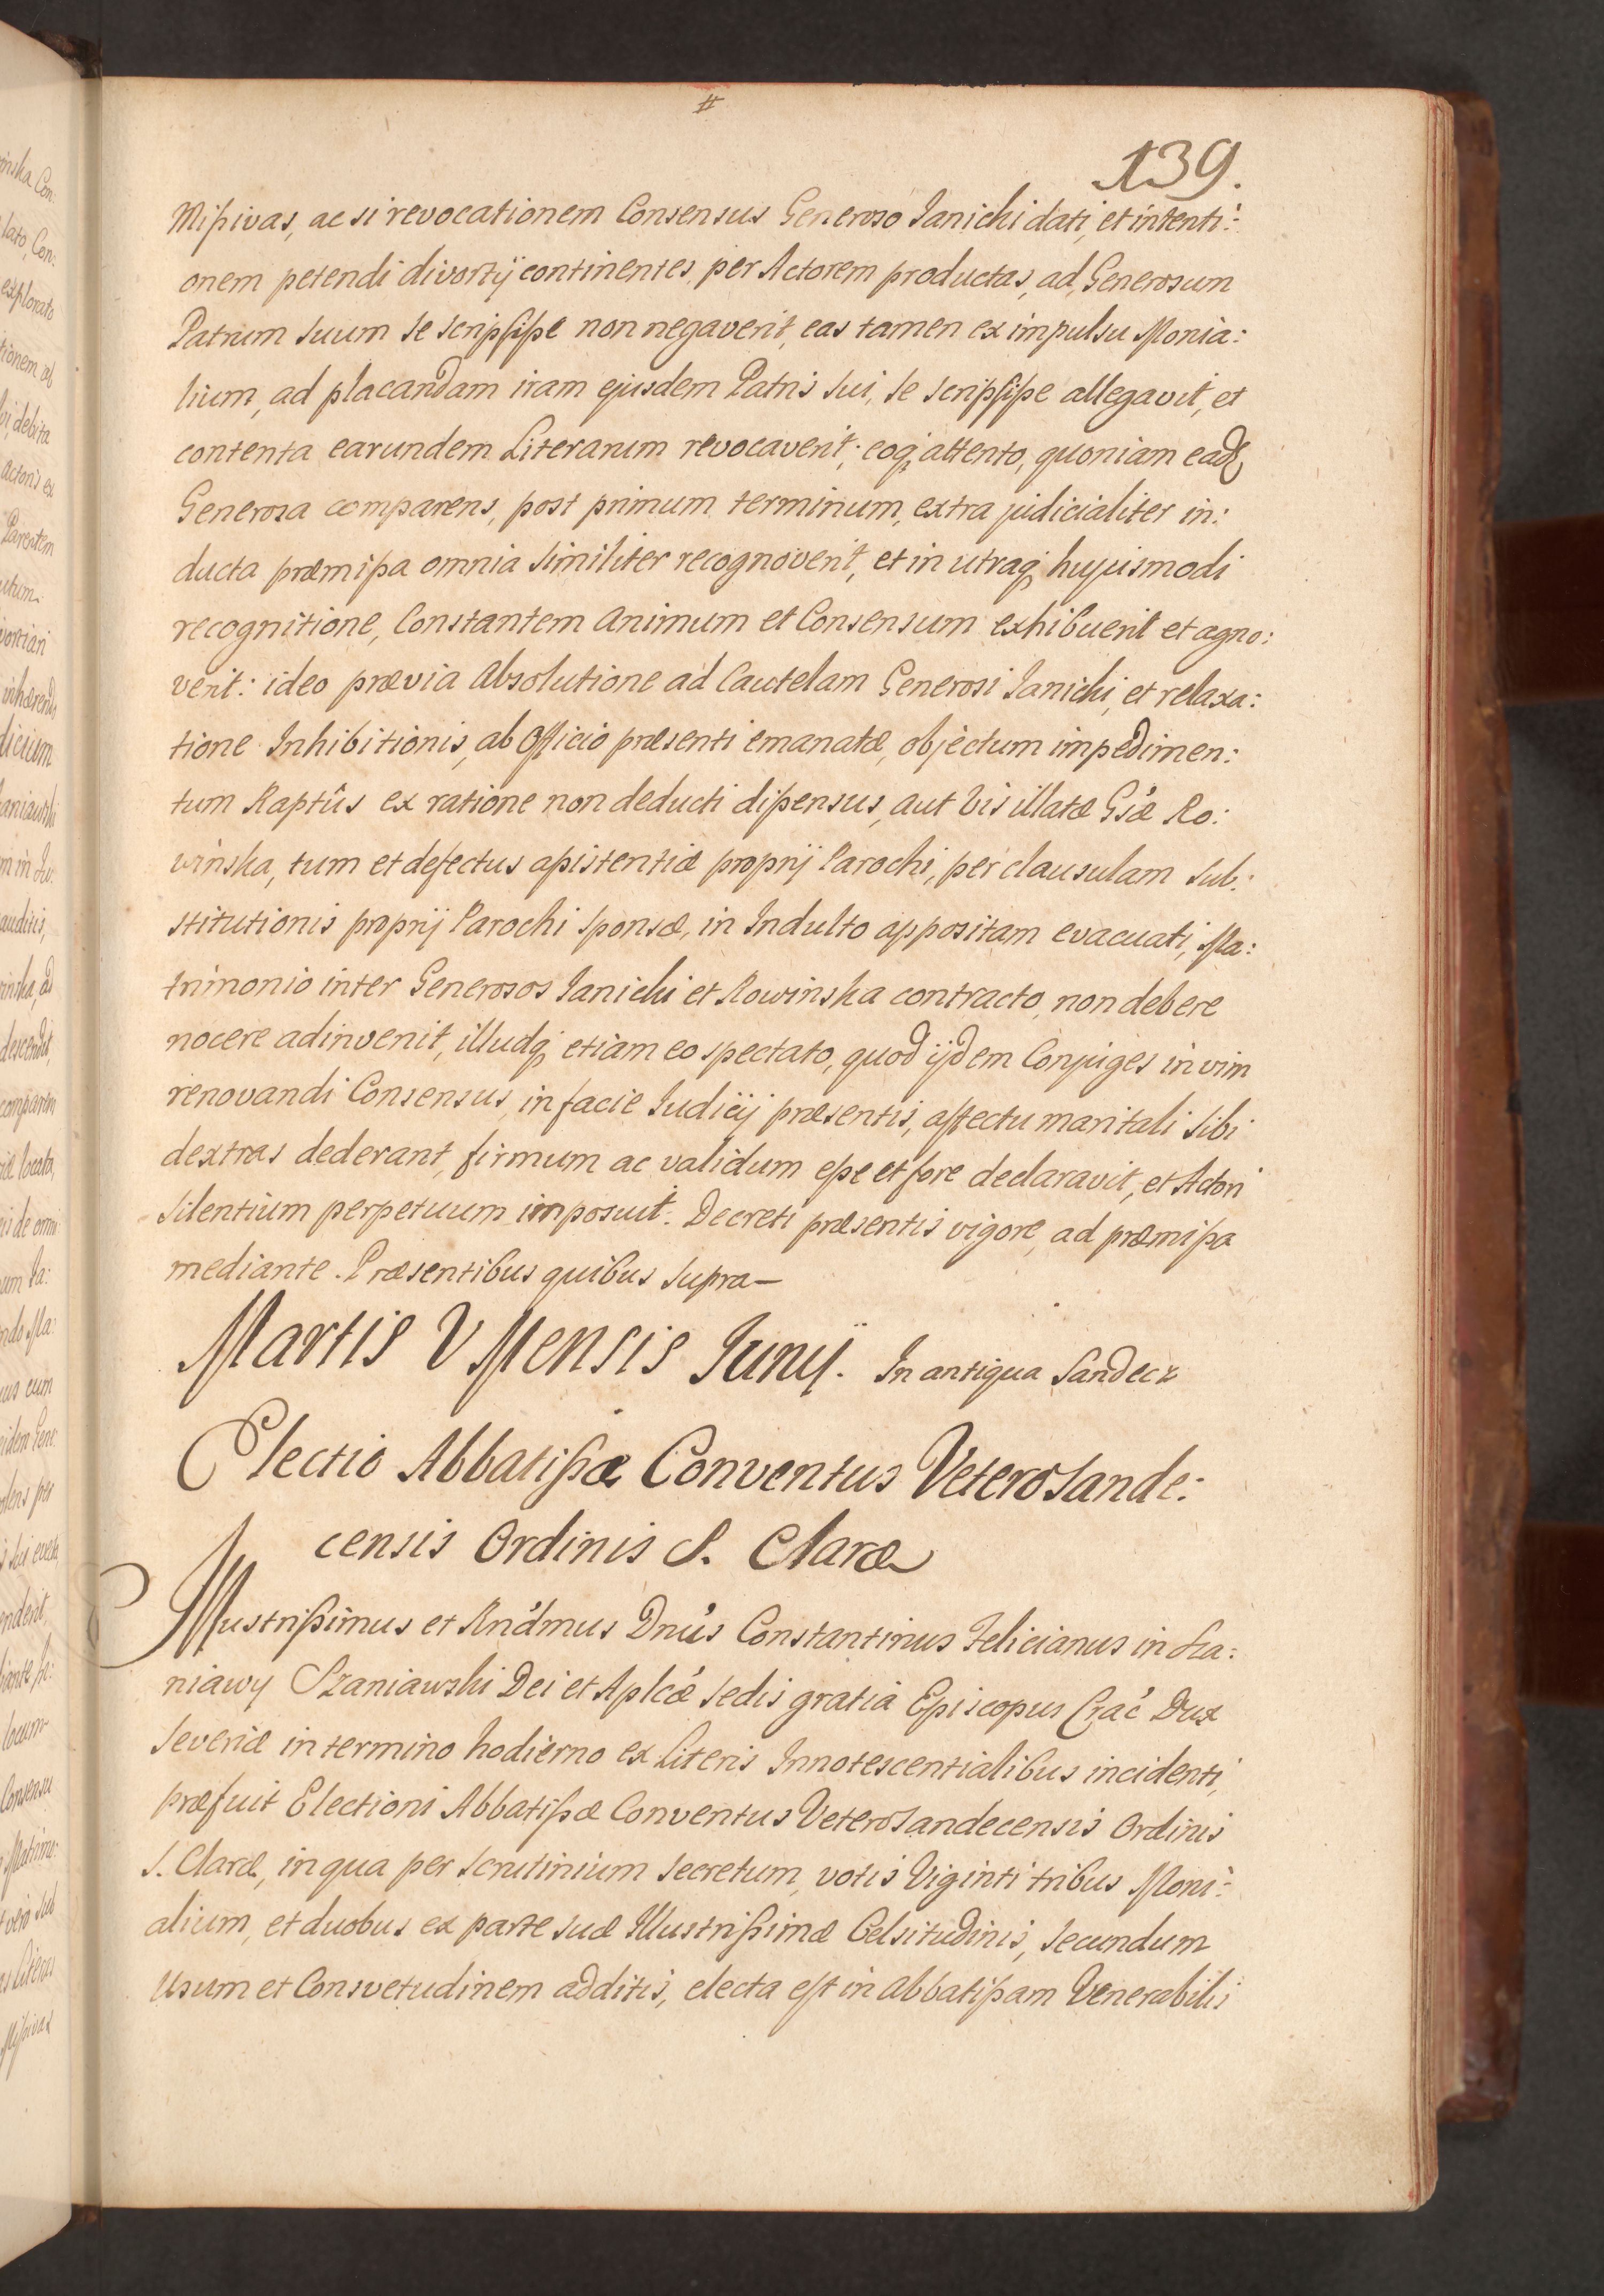 #
139.
Missivas, ac si revocationem Consensus Generoso Janichi dati, et intenti:
onem petendi divortÿ continentes, per Actorem productas, ad Generosum
Patrum suum se scripsisse non negaverit, eas tamen ex impulsu Monia:
lium, ad placandam iram ejusdem Patris sui, se scripsisse allegavit, et
contenta earundem Literarum revocaverit; eoq; attento, quoniam ead
Generosa comparens, post primum terminum, extra judicialiter in:
ducta præmissa omnia similiter recognoverit, et in utraq; hujusmodi
recognitione, Constantem animum et Consensum exhibuerit et agno:
verit: ideo prævia Absolutione ad Cautelam Generosi Janichi, et relaxa:
tione Inhibitionis, ab Officio præsenti emanatæ, objectum impedimen:
tum Raptûs ex ratione non deducti dissensus, aut Vis illatæ Gsæ Ro:
winska, tum et defectus assistentiæ proprij Parochi, per clausulam Sub:
stitutionis proprij Parochi Sponsæ, in Indulto appositam evacuati, Ma:
trimonio inter Generosos Janichi et Rowinska contracto, non debere
nocere adinvenit, illudq; etiam eo spectato, quod ijdem Conjuges in vim
renovandi Consensus, in facie Judicij præsentis, affectu maritali sibi
dextras dederant, firmum ac validum esse et fore declaravit, et Actori
silentium perpetuum imposuit. Decreti præsentis vigore, ad præmissa
mediante. Præsentibus quibus supra—
Martis V Mensis Junÿ. In antiqua Sandecz
Electio Abbatissæ Conventus Veterosande:
censis Ordinis S. Claræ
Illustrissimus et Rndmus Dnus Constantinus Felicianus in Sza:
niawy Szaniawski Dei et Aplcæ Sedis gratia Episcopus Crac Dux
Severiæ in termino hodierno ex Literis Innotescentialibus incidenti,
præfuit Electioni Abbatissæ Conventus Veterosandecensis Ordinis
S. Claræ, in qua per scrutinium secretum, votis Viginti tribus Moni:
alium, et duobus ex parte suæ Illustrissimæ Celsitudinis, secundum
Usum et Consvetudinem additis, electa est in Abbatissam Venerabilis